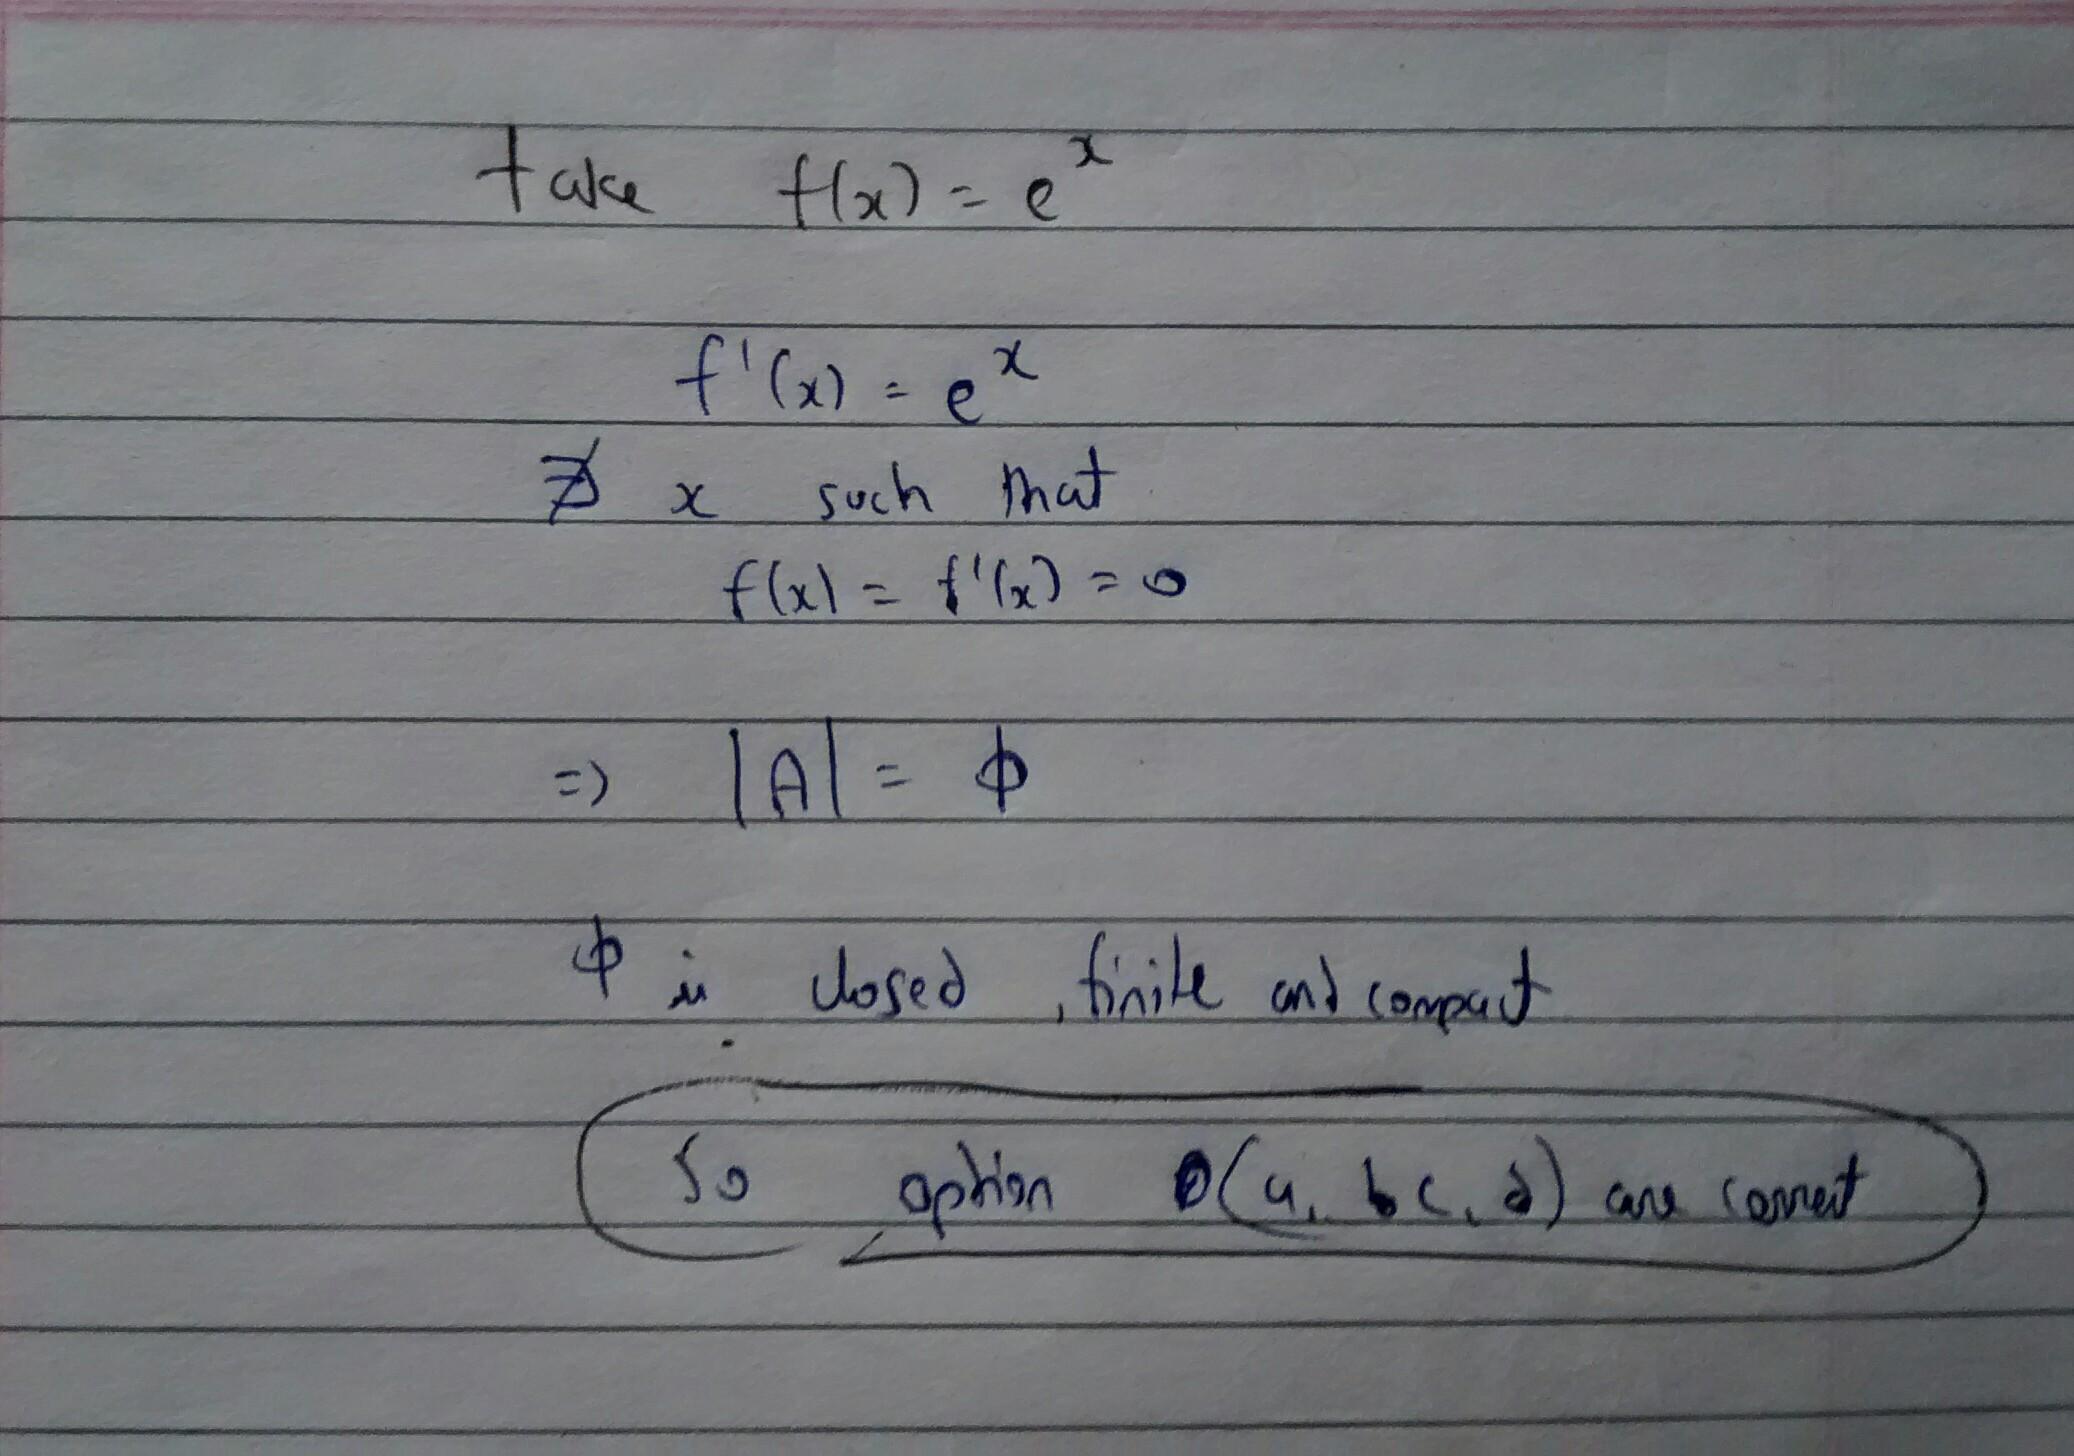 take f(x) = e^x
f'(x) = e^x
∄ x such that
f(x) = f'(x) = 0
=) |A| = ϕ
ϕ is closed, finite and compact
So option (a, b c, d) are correct